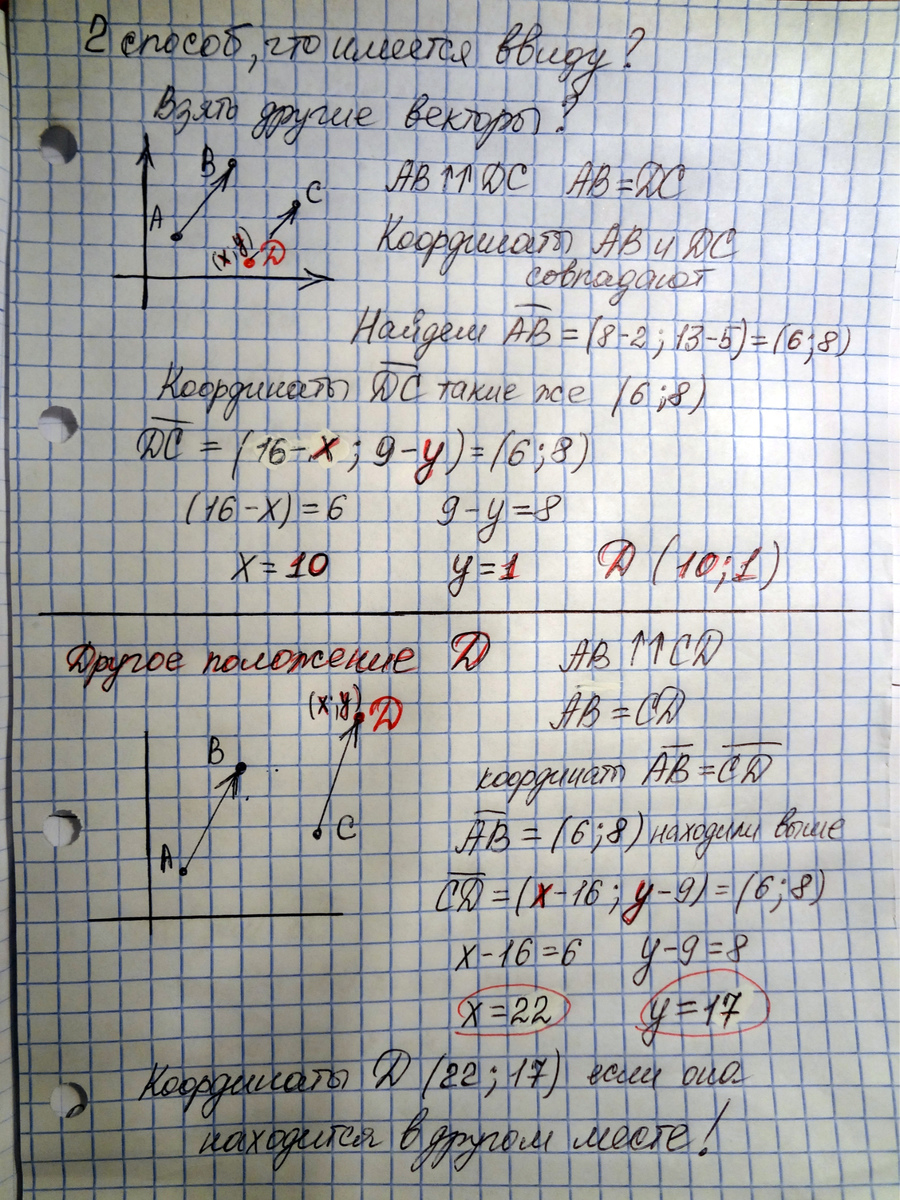 2 способ, что имеется ввиду?
Взять другие векторы?
B
A
C
(x;y) D
AB↑↑DC AB=DC
Координаты AB и DC
совпадают
Найдем AB = (8-2; 13-5) = (6;8)
Координаты DC такие же (6;8)
DC = (16-x; 9-y) = (6;8)
(16-x) = 6 9-y=8
x=10 y=1 D (10;1)
Другое положение D AB↑↑CD
(x;y) D
AB=CD
B
A
C
координаты AB=CD
AB = (6;8) находили выше
CD = (x-16; y-9) = (6;8)
x-16=6 y-9=8
x=22 y=17
Координаты D (22; 17) если она
находится в другом месте!